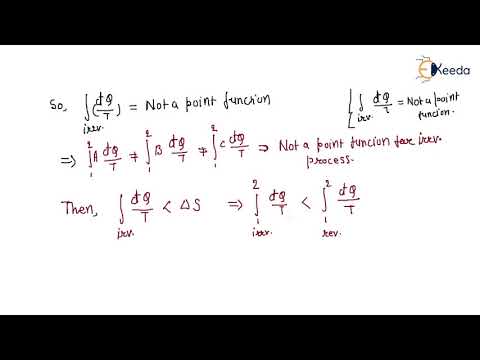 EKeeda
So, ∫irrv. (đQ/T) = Not a point funcion
[ ∫irr. đQ/T = Not a point funcion.
⇒ ∫₁²A đQ/T ≠ ∫₁²B đQ/T ≠ ∫₁²C đQ/T ⇒ Not a point funcion for irrv. process.
Then, ∫irv. đQ/T < ΔS ⇒ ∫₁² irrv. đQ/T < ∫₁² rev. đQ/T